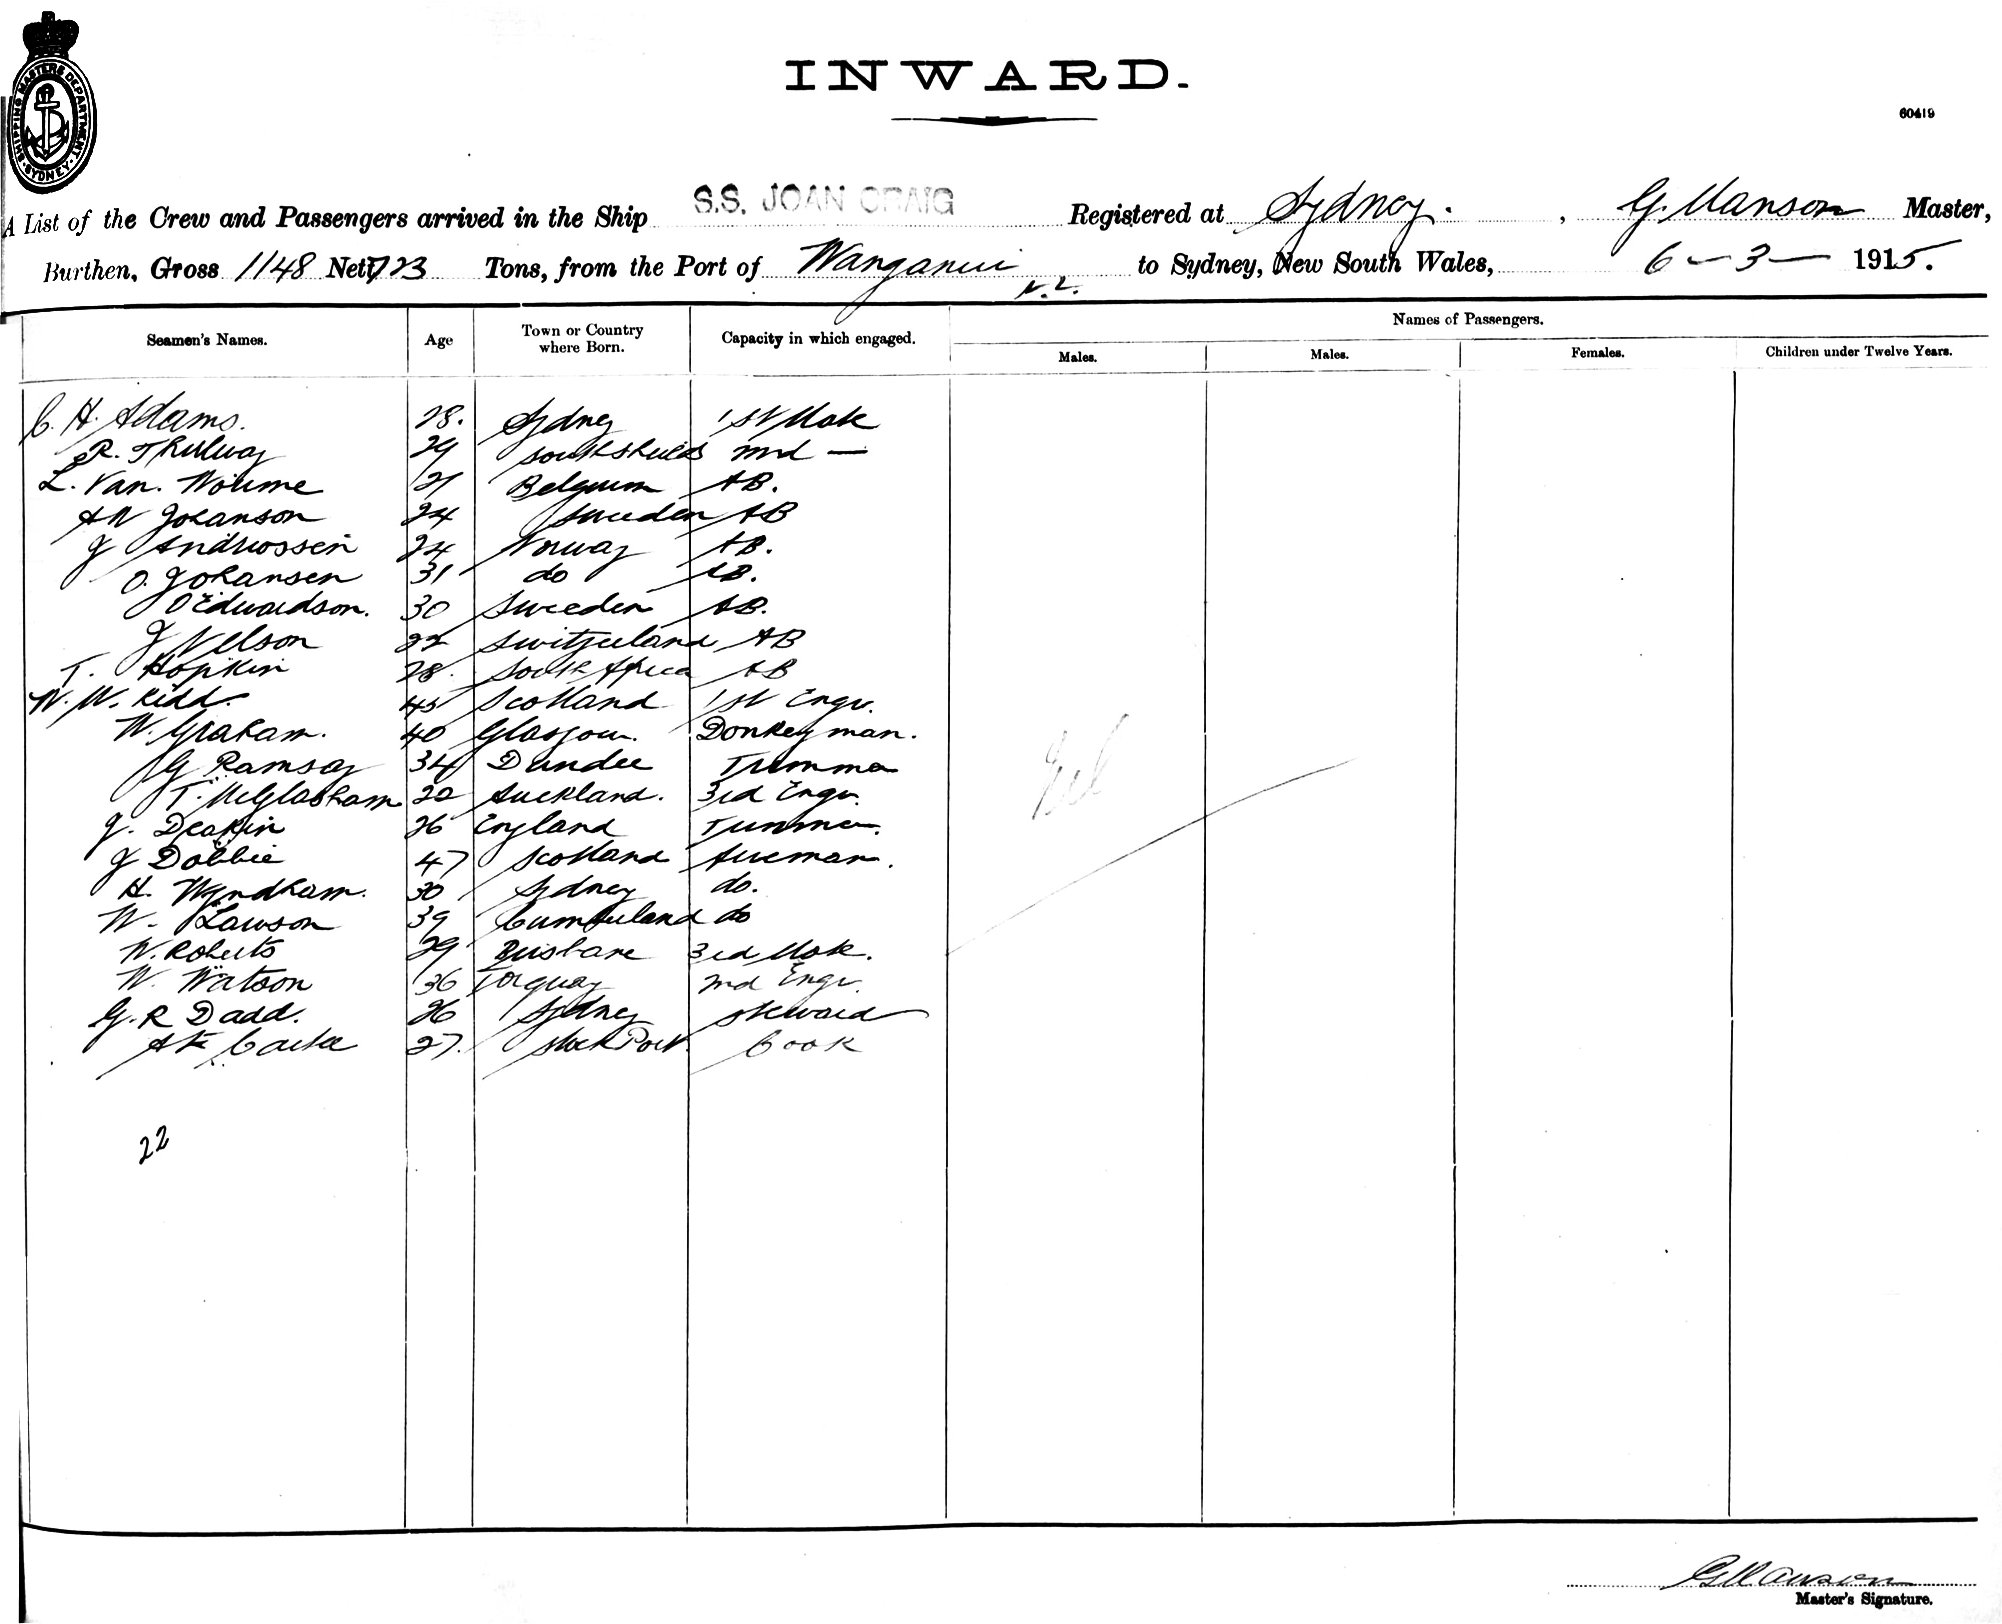 SHIPPING MASTERS DEPARTMENT SYDNEY
INWARD.
60419
A List of the Crew and Passengers arrived in the Ship S.S. JOAN CRAIG Registered at Sydney. , G. Manson Master,
Burthen, Gross 1148 Nett 723 Tons, from the Port of Wanganui N.Z. to Sydney, New South Wales, 6 - 3 - 1915.
Names of Passengers.
Seamen's Names. Age Town or Country where Born. Capacity in which engaged. Males. Males. Females. Children under Twelve Years.
C. H. Adams. 28. Sydney 1st Mate
R. 29 South Shields 2nd —
L. Van. 21 Belgium AB.
AW Johanson 24 Sweeden AB
J Andriossen 24 Norway AB.
O. Johansen 31 do AB.
O Edwardson. 30 Sweeden AB.
J Nelson 22 Switzerland AB
T. Hopkin 28. South Africa AB
W. W. Kidd. 45 Scotland 1st Engr.
W. Graham. 40 Glasgow. Donkeyman.
G Ramsay 34 Dundee Trimmer
T. McGlasham 22 Auckland. 3rd Engr.
J. Deakin 26 England Trimmer.
J Dobbie 47 Scotland fireman.
H. Wyndham. 30 Sydney do.
W. Lawson 39 Cumberland do
W. Roberts 29 Brisbane 3rd Mate.
W. Watson 36 Torquay 2nd Engr.
G. R Dadd. 26 Sydney Steward
Carter 27. StockPort. Cook
22
G Manson
Master's Signature.